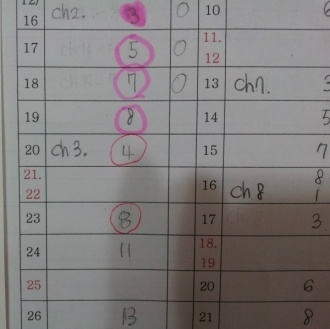 12/
16 ch2. 3 0 10 6
17 5 0 11.
12
18 7 0 13 ch7. 3
19 8 14 5
20 ch3. 4 15 7
21.
22 16 ch8 8
1
23 8 17 3
24 11 18.
19
25 20 6
26 13 21 8